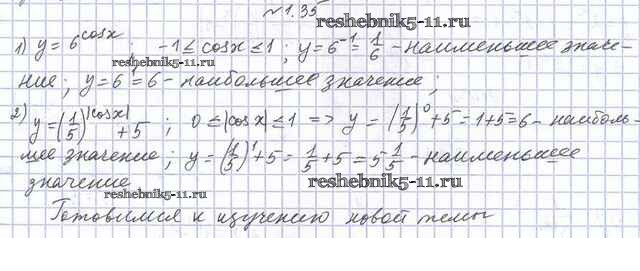 №1.35
reshebnik5-11.ru
1) y = 6^cosx   -1 ≤ cosx ≤ 1 ; y = 6^-1 = 1/6 - наименьшее значе-
ние ; y = 6^1 = 6 - наибольшее значение ;
2) y = (1/5)^|cosx| + 5 ; 0 ≤ |cosx| ≤ 1 => y = (1/5)^0 + 5 = 1 + 5 = 6 - наиболь-
шее значение ; y = (1/5)^1 + 5 = 1/5 + 5 = 5 1/5 - наименьшее
значение
reshebnik5-11.ru
reshebnik5-11.ru
Готовимся к изучению новой темы